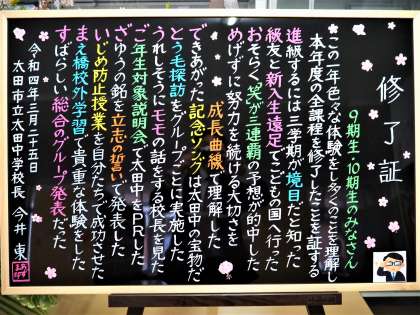 修了証
9期生・10期生のみなさん
この一年色々な体験をし多くのことを理解し
本年度の全課程を修了したことを証する
進級するには三学期が境目だと知った
級友と新入生遠足でこどもの国へ行った
おそらく笑が三連覇の予想が的中した
めげずに努力を続ける大切さを
成長曲線で理解した
できあがった記念ソングは太田中の宝物だ
とう毛探訪をグループごとに実施した
うれしそうにモモの話をする校長を見た
ご年生対象説明会で太田中をPRした
ざゆうの銘を立志の誓いで発表した
いじめ防止授業を自分たちで成功させた
まえ橋校外学習で貴重な体験をした
すばらしい総合のグループ発表だった
令和四年三月二十五日
太田市立太田中学校長 今井 東